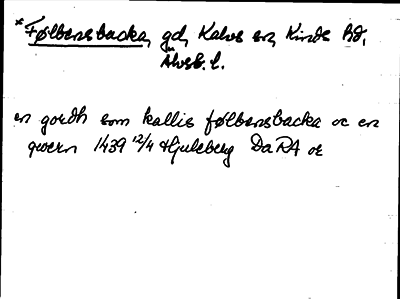 *Følbensbacka, gd, Kalvs sn, Kinds hd,
Älvsb. l.
en gordh som kallis følbensbacka oc en
qwern 1439 12/4 Hjuleberg DaRA or